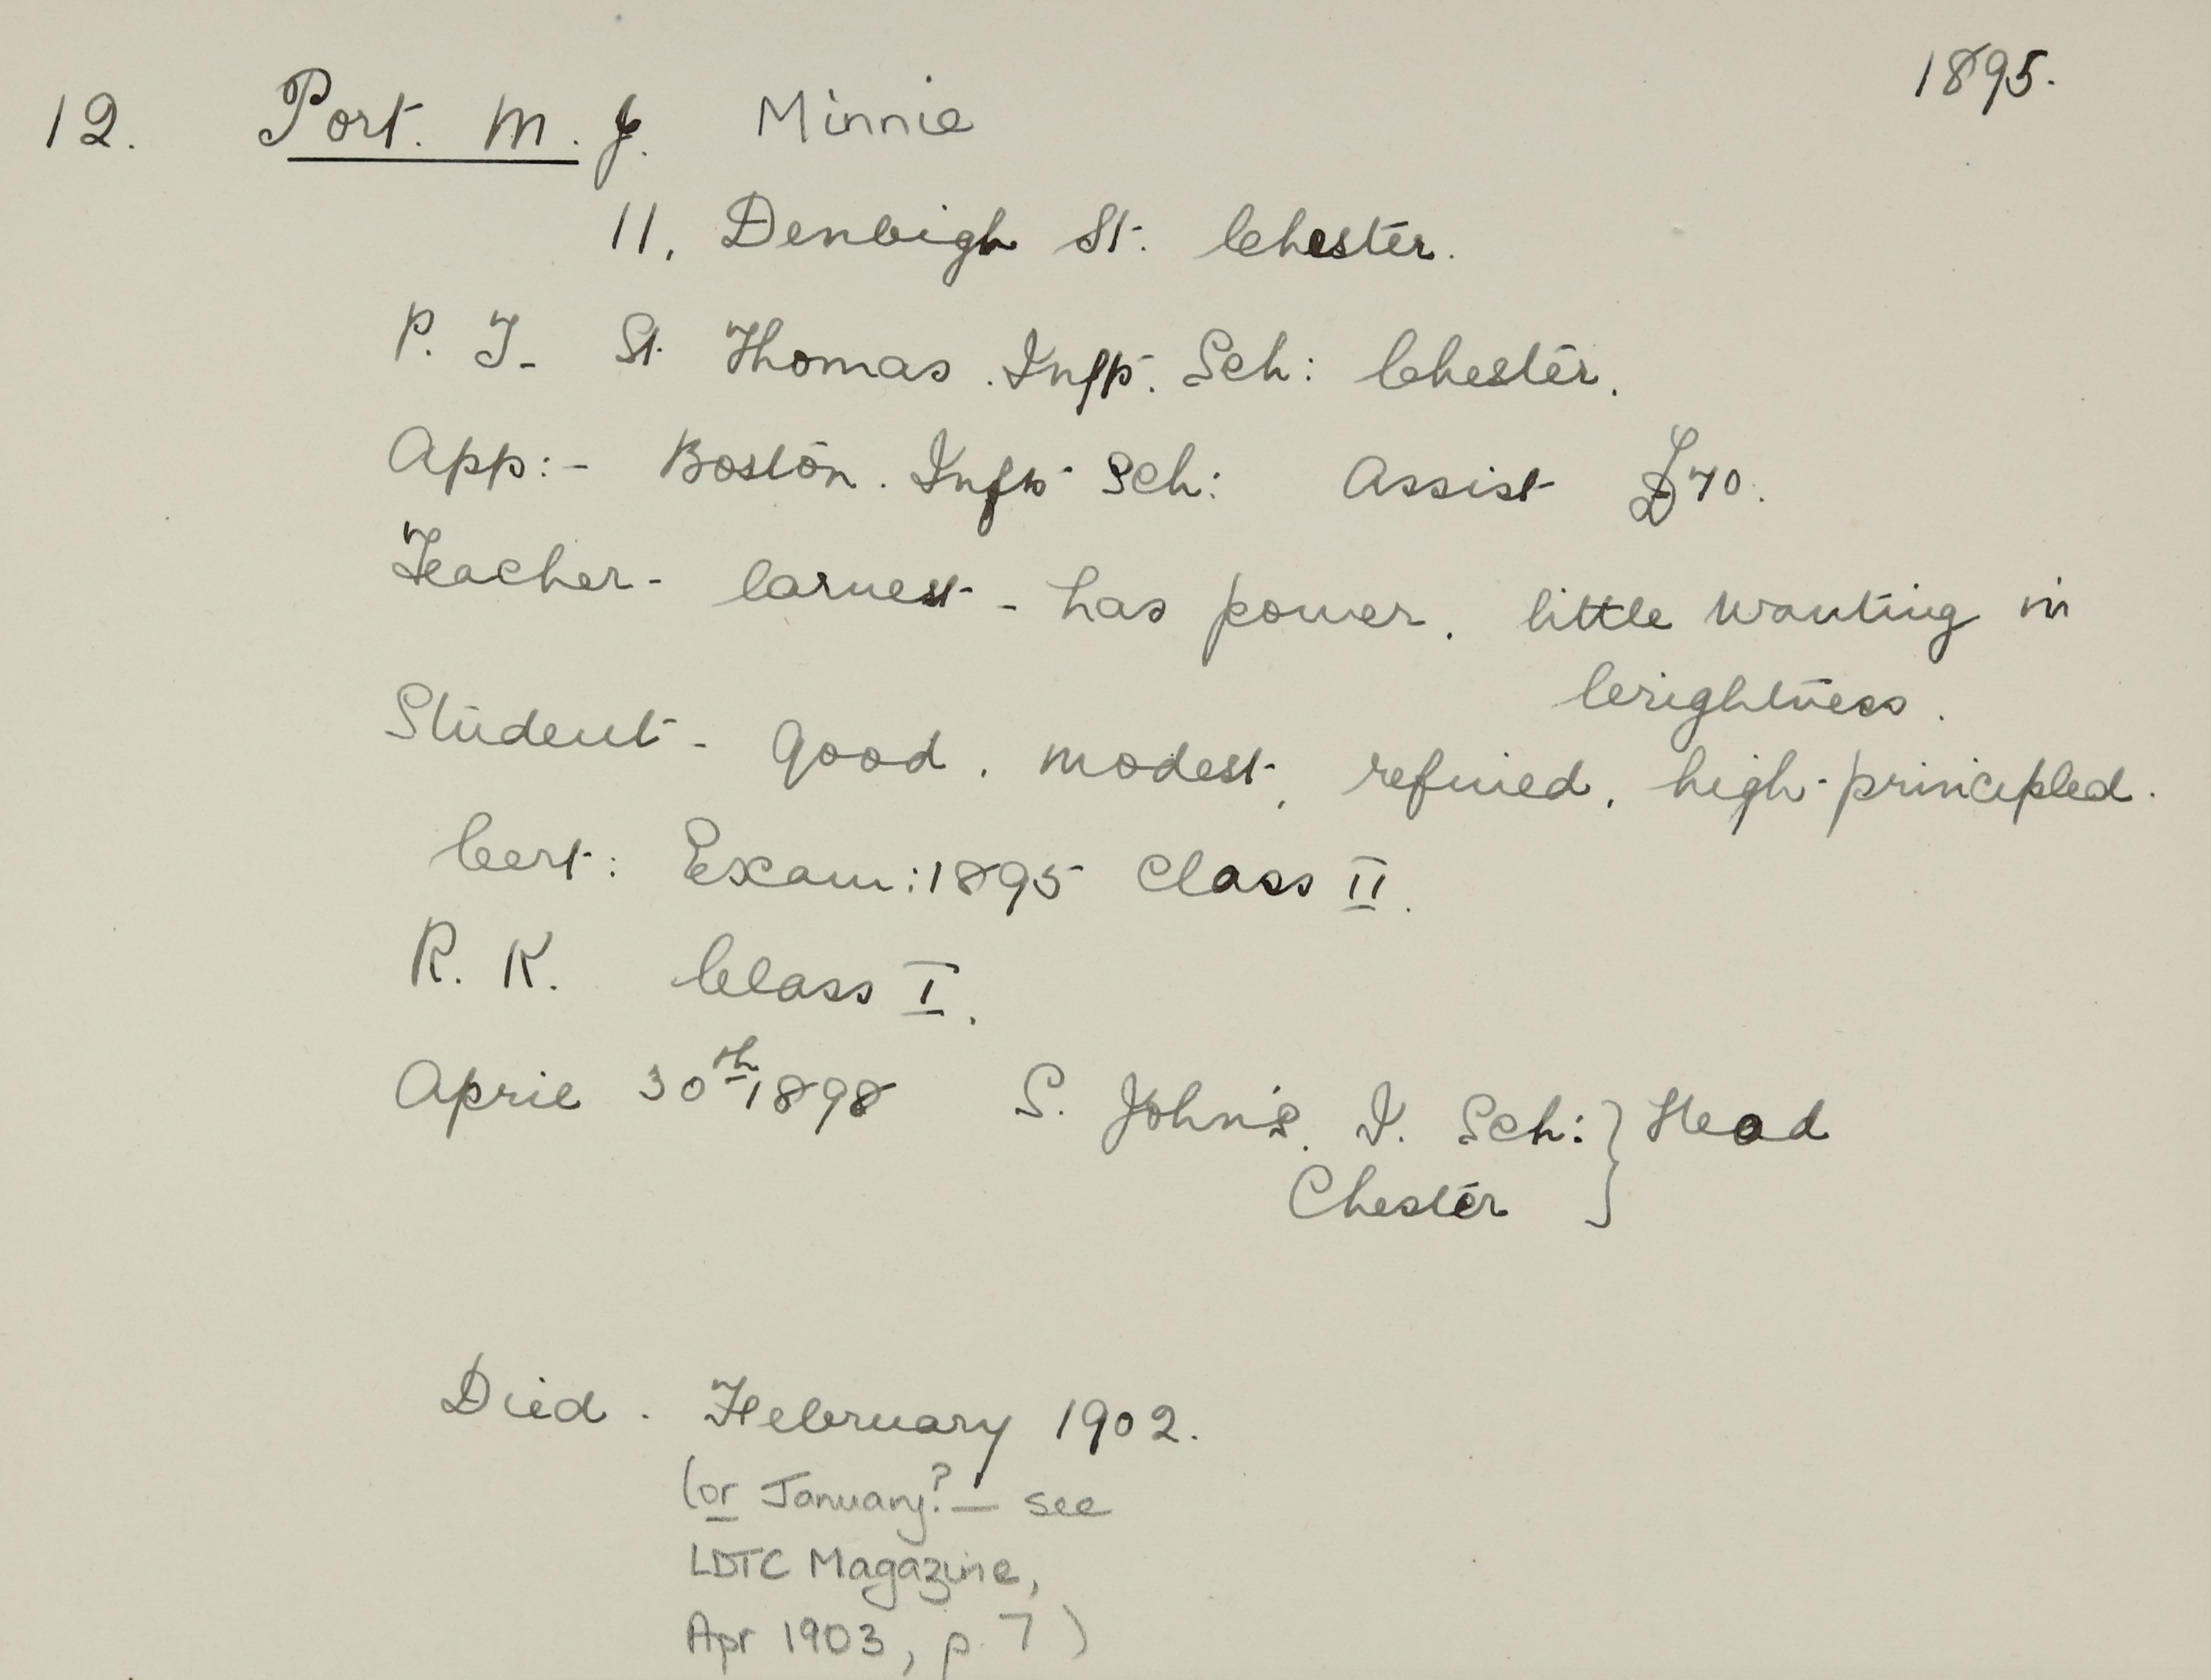 1895.
12. Port. M. J. Minnie
11, Denbigh St. Chester.
P. T. St. Thomas. Infs. Sch: Chester.
App:- Boston. Infs Sch: Assist £70.
Teacher - Earnest - has power. little wanting in
brightness.
Student - Good. modest, refined, high-principled.
Cert: Exam: 1895 Class II.
R. K. Class I.
April 30th 1898 S. John's. I. Sch: } Head
Chester
Died. February 1902.
(or January? — see
LDTC Magazine,
Apr 1903, p. 7)